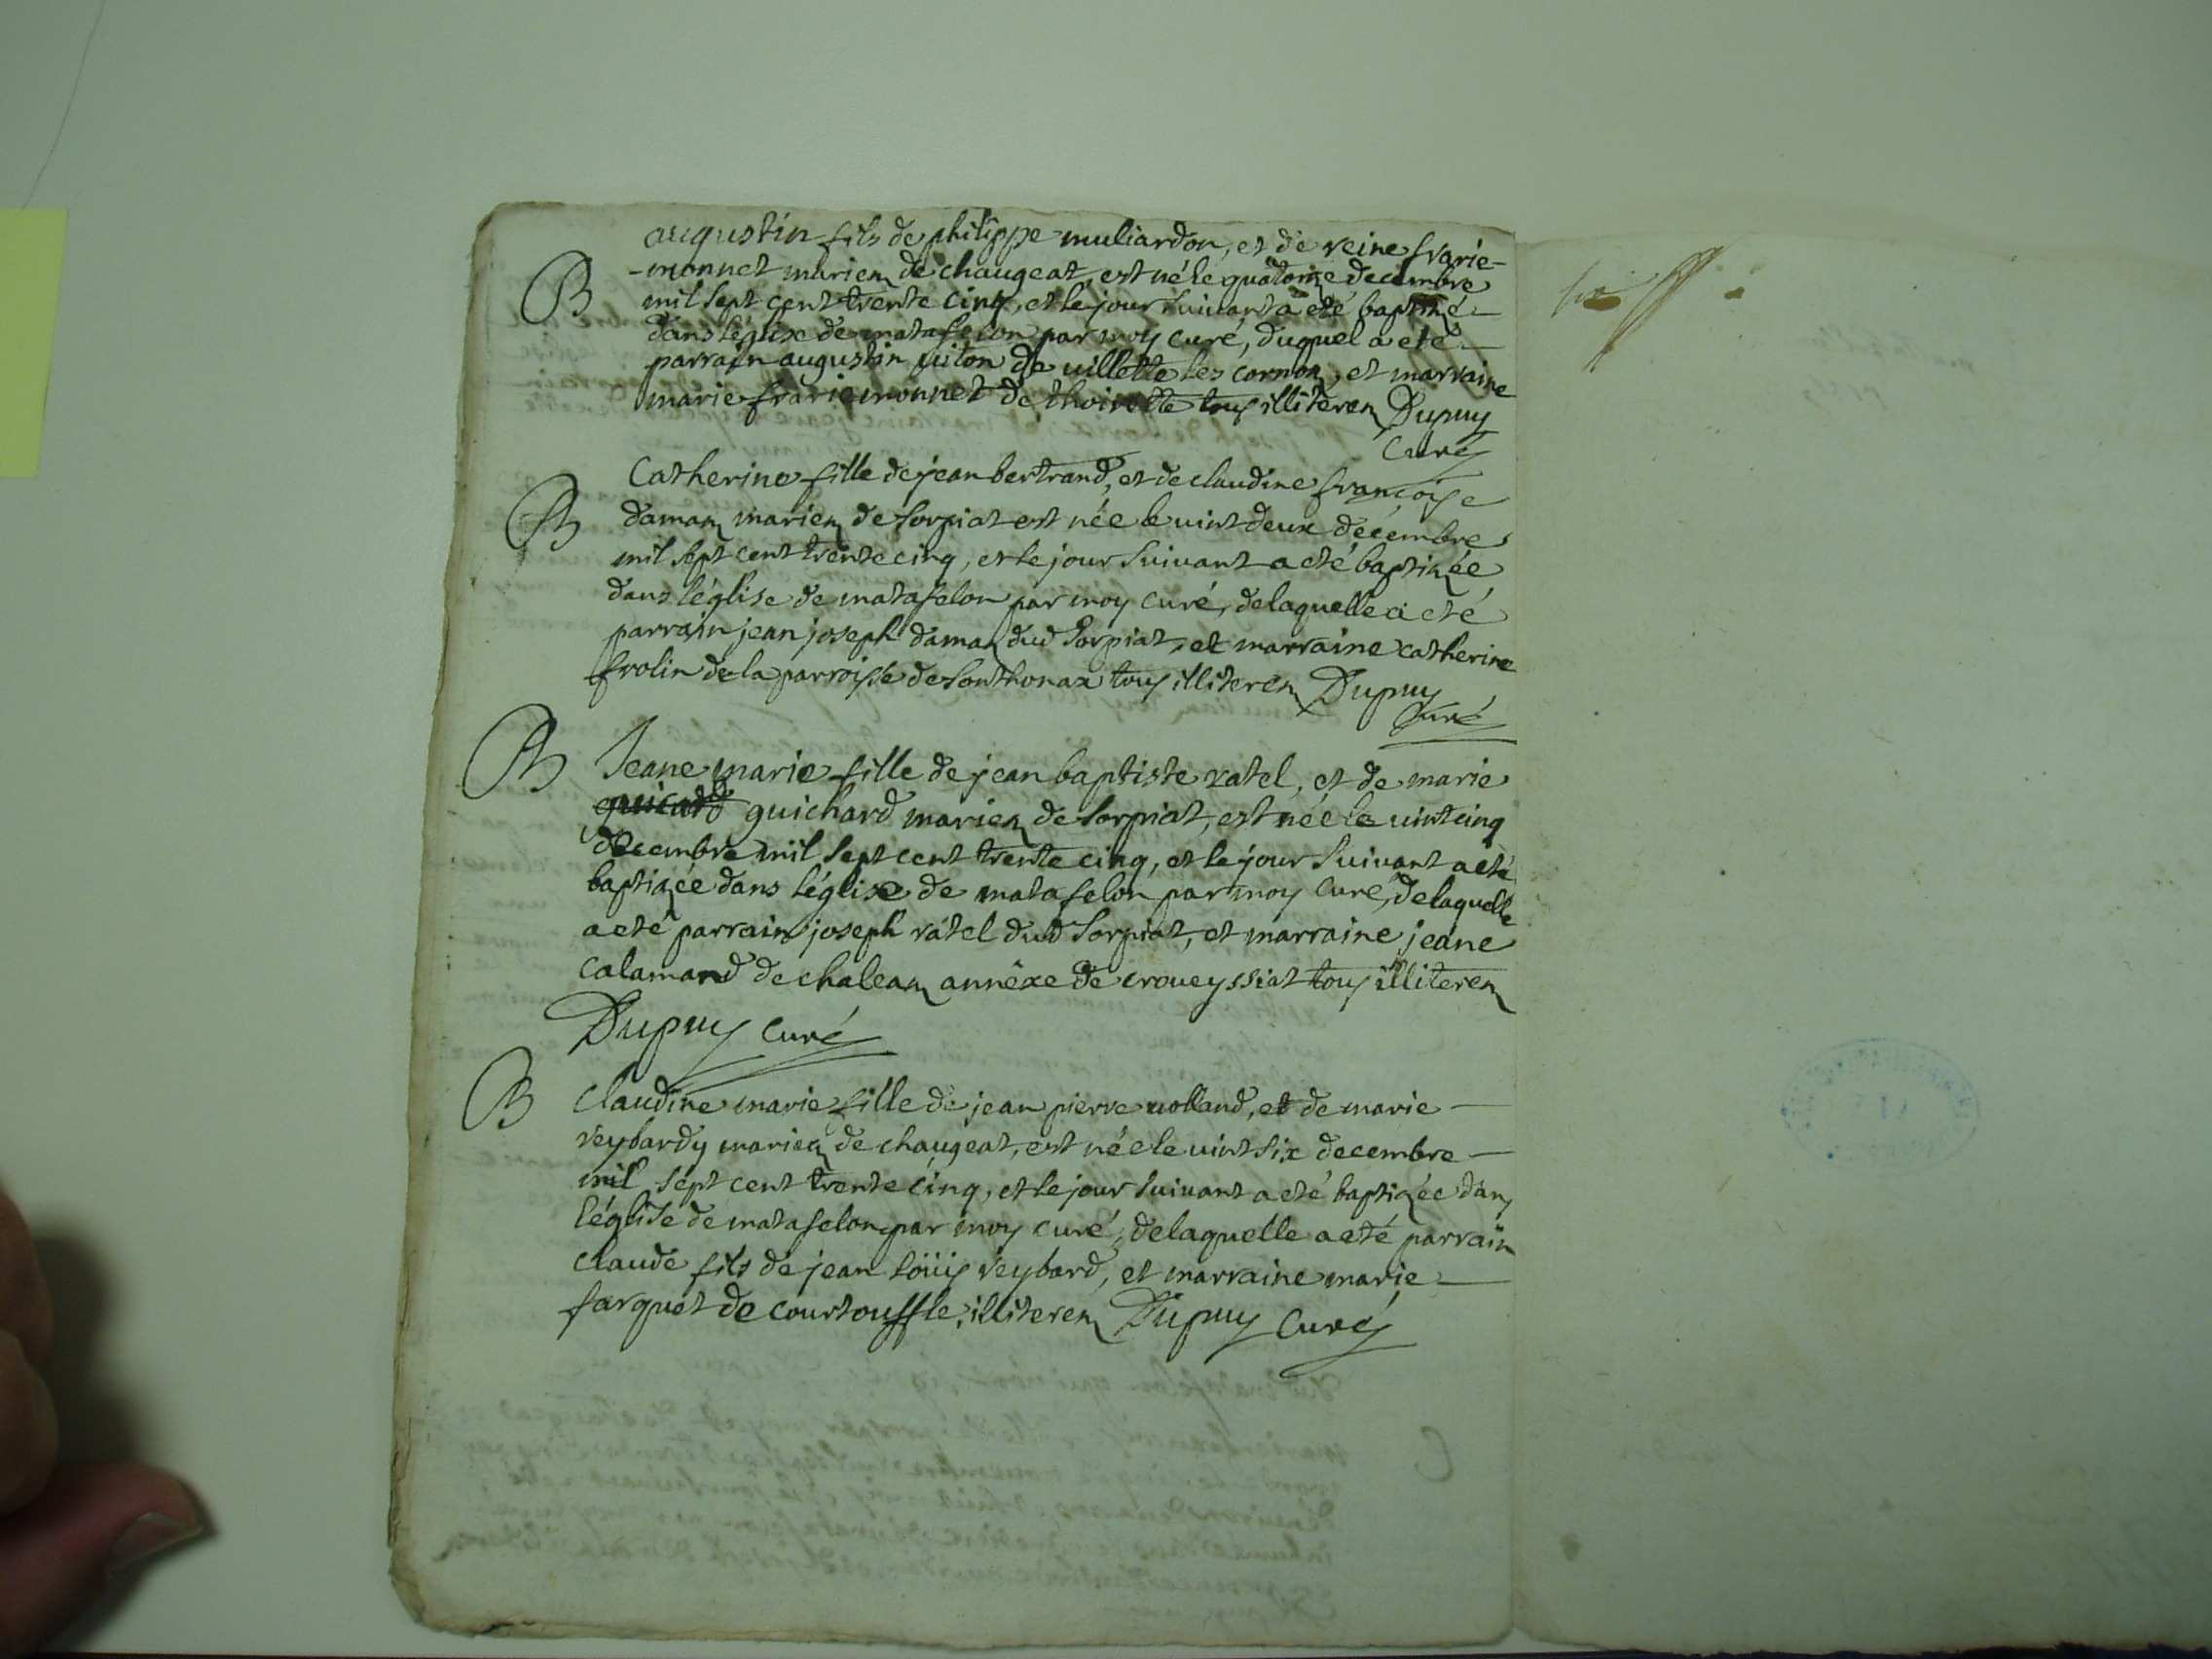 augustin fils de philippe muliardon, et de reine frarie-
B
-monnet mariez de chaugeat, est né le quatorze decembre
mil sept cent trente cinq, et le jour suivant a eté baptizé
dans léglize de matafelon par moy curé, duquel a eté
parrain augustin uiton de uillette les cornon, et marraine
marie frariemonnet de thoirette tous illiterez Dupuy
Curé
Catherine fille de jean bertrand, et de claudine françoise
B
damaz mariez de sorpiat est née le uint deux décembre
mil sept cent trente cinq, et le jour suiuant a eté baptizée
dans léglise de matafelon par moy curé, de laquelle a eté
parrain jean joseph damaz dud sorpiat, et marraine catherine
frolin de la parroisse de sonthonax tous illiterez Dupuy
Curé
B
Jeane marie fille de jean baptiste ratel, et de marie
guichard mariez de sorpiat, est née le uint cinq
decembre mil sept cent trente cinq, et le jour suiuant a eté
baptizée dans léglise de matafelon par moy curé, de laquelle
a eté parrain joseph ratel dud sorpiat, et marraine jeane
calamand de chaleaz annéxe de croueyssiat tous illiterez
Dupuy Curé
B
claudine marie fille de jean pierre uolland, et de marie
reybardy mariez de chaugeat, est née le uint six decembre
mil sept cent trente cinq, et le jour suiuant a eté baptizée dans
léglise de matafelon par moy curé, de laquelle a eté parrain
claude fils de jean loüis reybard, et marraine marie
farguet de courtouffle, illiterez Dupuy Curé